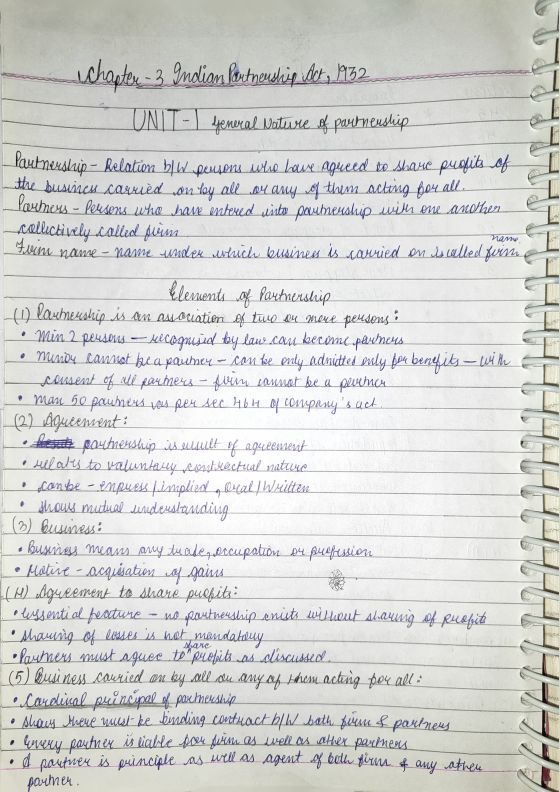 Chapter - 3 Indian Partnership Act, 1932
UNIT-1 General Nature of partnership
Partnership - Relation b/w persons who have agreed to share profits of
the business carried on by all or any of them acting for all.
Partners - Persons who have entered into partnership with one another
collectively called firm
Firm name - name under which business is carried on is called firm name
Elements of Partnership
(1) Partnership is an association of two or more persons:
• Min 2 persons - recognised by law can become partners
• Minor cannot be a partner - can be only admitted only for benefits - with
consent of all partners - firm cannot be a partner
• Max 50 partners as per sec 464 of company's act.
(2) Agreement:
• partnership is result of agreement
• relates to voluntary contractual nature
• can be - express/implied, Oral/Written
• Shows mutual understanding
(3) Business:
• Business means any trade, occupation or profession
• Motive - acquisation of gains
(4) Agreement to share profits:
• Essential feature - no partnership exists without sharing of profits
• Sharing of losses is not mandatory
• Partners must agree to share profits as discussed.
(5) Business carried on by all or any of them acting for all:
• Cardinal principal of partnership
• Shows there must be binding contract b/w both firm & partners
• Every partner is liable for firm as well as other partners
• A partner is principle as well as agent of both firm & any other
partner.